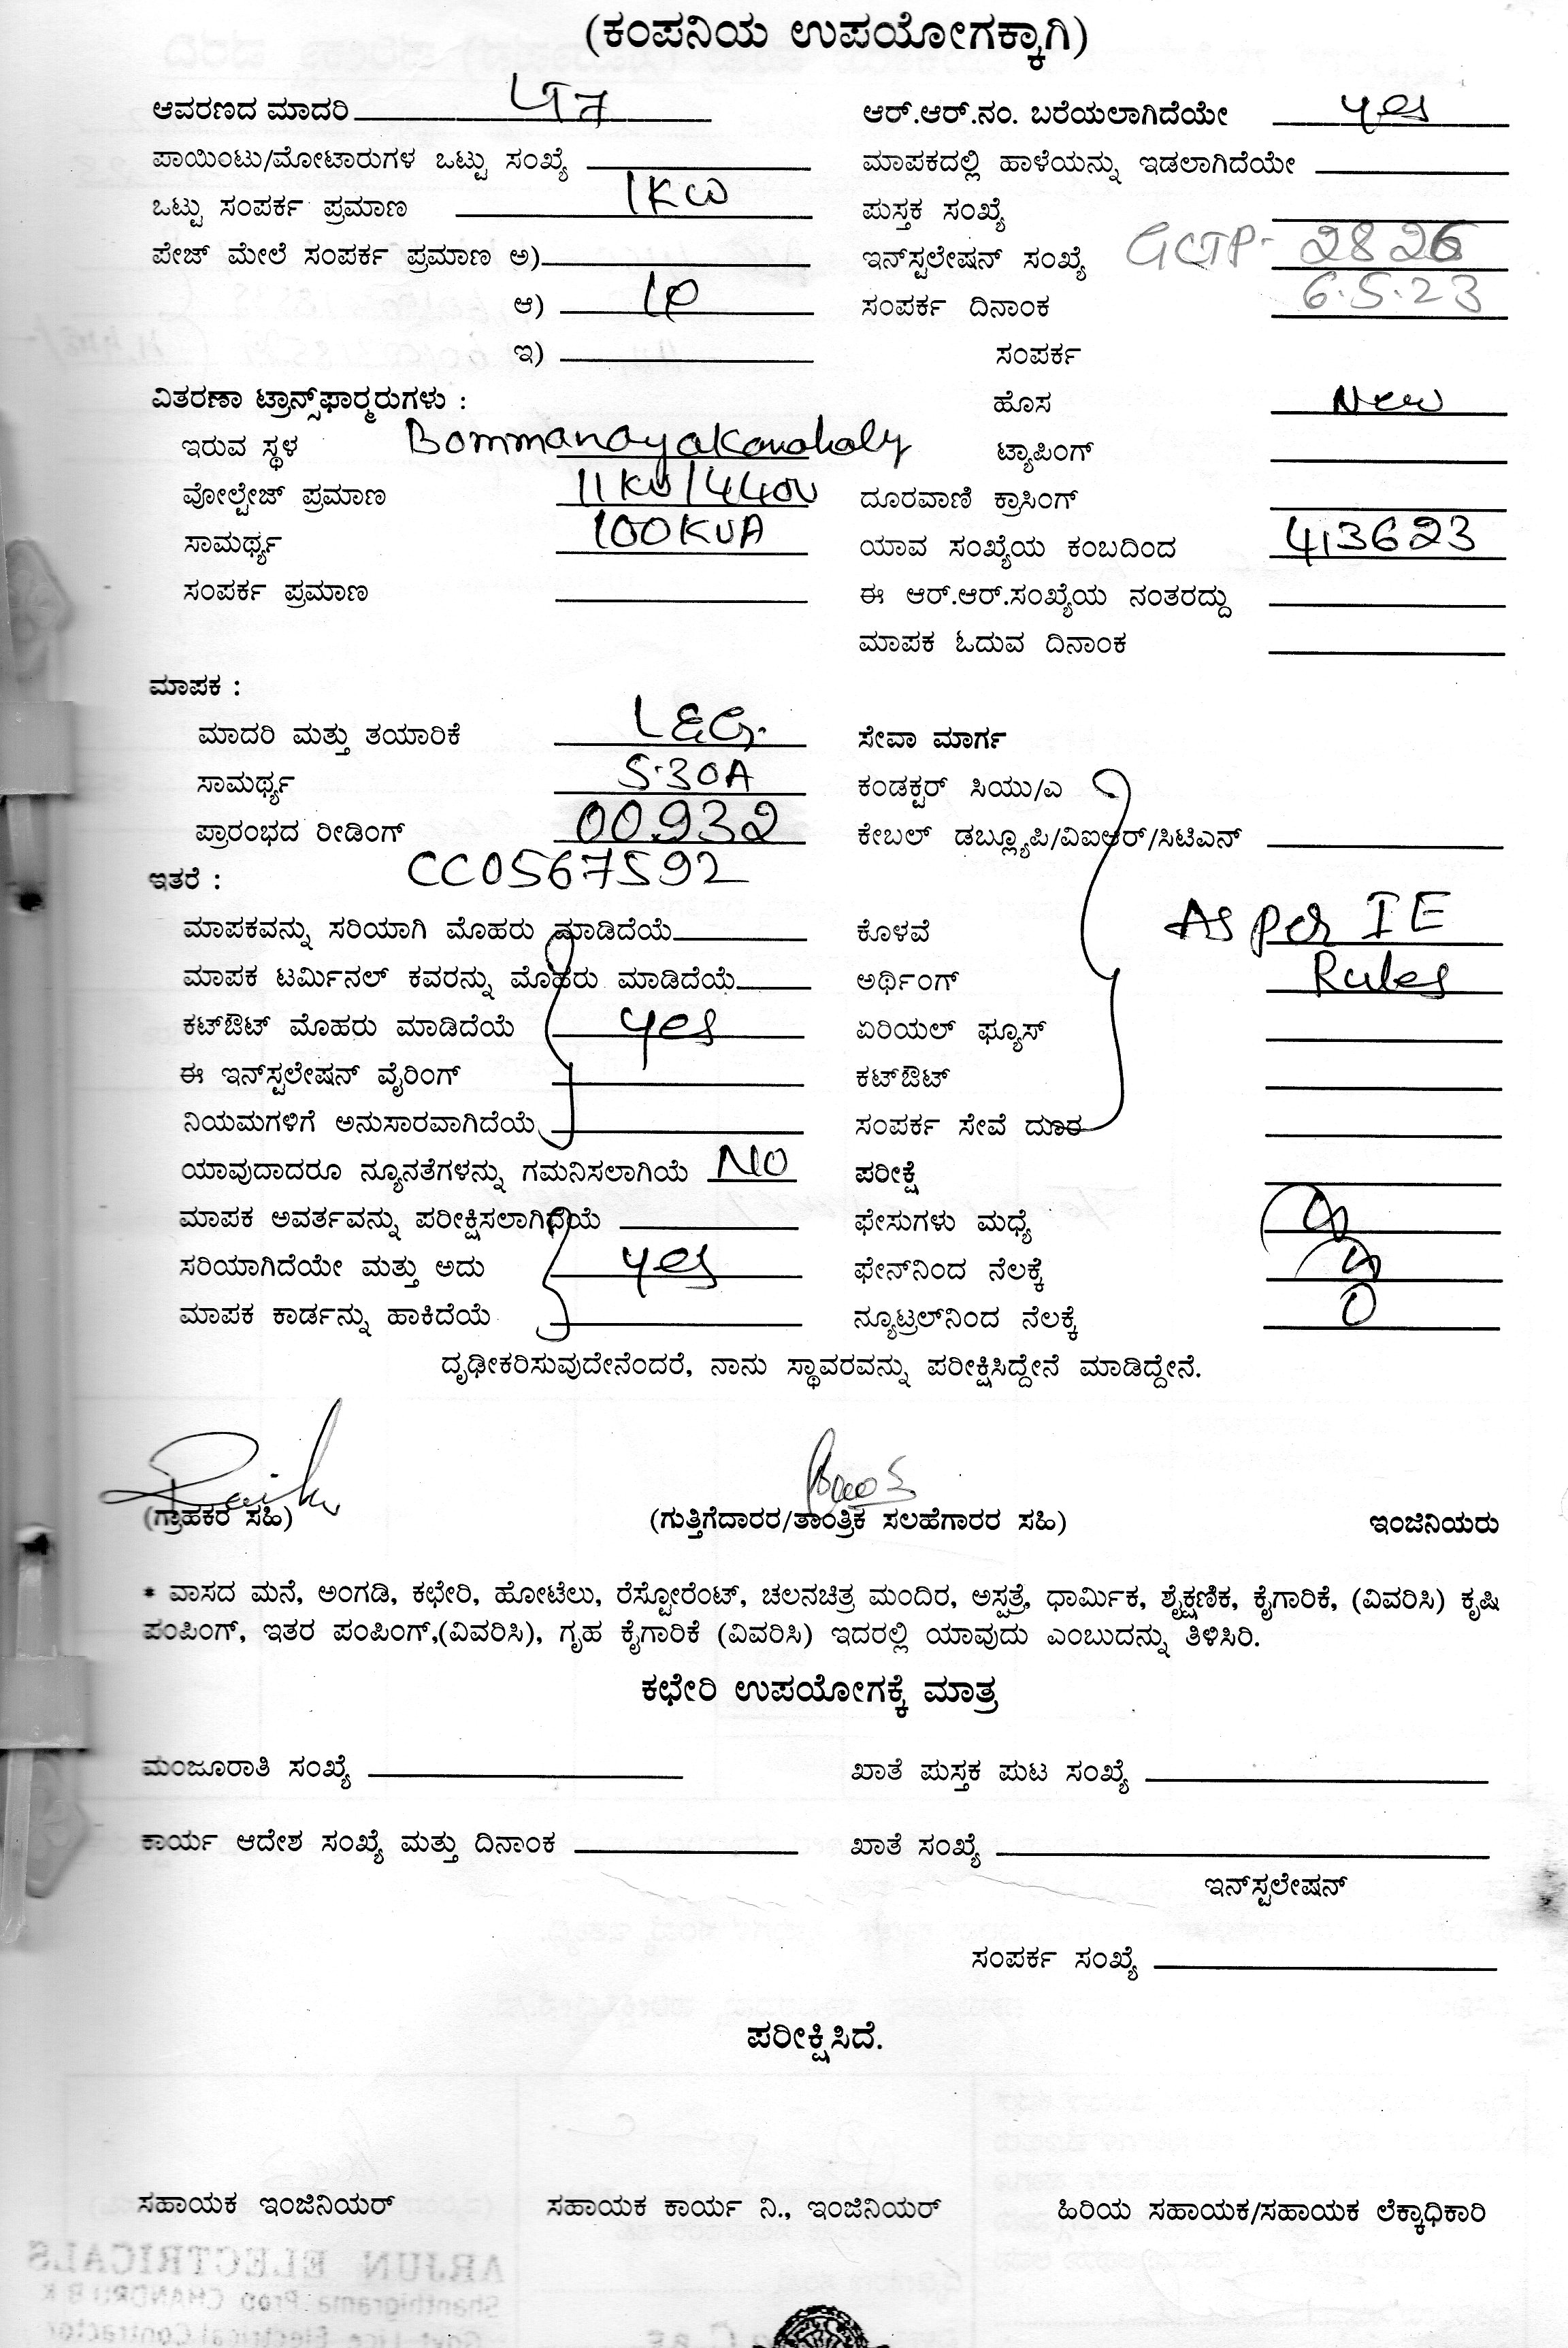 (ಕಂಪನಿಯ ಉಪಯೋಗಕ್ಕಾಗಿ)
ಆವರಣದ ಮಾದರಿ LT7 ಆರ್.ಆರ್.ನಂ. ಬರೆಯಲಾಗಿದೆಯೇ yes
ಪಾಯಿಂಟು/ಮೋಟಾರುಗಳ ಒಟ್ಟು ಸಂಖ್ಯೆ ಮಾಪಕದಲ್ಲಿ ಹಾಳೆಯನ್ನು ಇಡಲಾಗಿದೆಯೇ
ಒಟ್ಟು ಸಂಪರ್ಕ ಪ್ರಮಾಣ 1KW ಪುಸ್ತಕ ಸಂಖ್ಯೆ
ಪೇಜ್ ಮೇಲೆ ಸಂಪರ್ಕ ಪ್ರಮಾಣ ಅ) ಇನ್‌ಸ್ಟಲೇಷನ್ ಸಂಖ್ಯೆ GCTP- 2826
ಆ) ಸಂಪರ್ಕ ದಿನಾಂಕ 6.5.23
ಇ) ಸಂಪರ್ಕ
ವಿತರಣಾ ಟ್ರಾನ್ಸ್‌ಫಾರ್‍ಮರುಗಳು : ಹೊಸ New
ಇರುವ ಸ್ಥಳ Bommanayakanahaly ಟ್ಯಾಪಿಂಗ್
ವೋಲ್ಟೇಜ್ ಪ್ರಮಾಣ 11KV/440V ದೂರವಾಣಿ ಕ್ರಾಸಿಂಗ್
ಸಾಮರ್ಥ್ಯ 100KVA ಯಾವ ಸಂಖ್ಯೆಯ ಕಂಬದಿಂದ 413623
ಸಂಪರ್ಕ ಪ್ರಮಾಣ ಈ ಆರ್.ಆರ್.ಸಂಖ್ಯೆಯ ನಂತರದ್ದು
ಮಾಪಕ ಓದುವ ದಿನಾಂಕ
ಮಾಪಕ :
ಮಾದರಿ ಮತ್ತು ತಯಾರಿಕೆ L&G. ಸೇವಾ ಮಾರ್ಗ
ಸಾಮರ್ಥ್ಯ 5.30A ಕಂಡಕ್ಟರ್ ಸಿಯು/ಎ
ಪ್ರಾರಂಭದ ರೀಡಿಂಗ್ 00932 ಕೇಬಲ್ ಡಬ್ಲ್ಯೂಪಿ/ವಿಐಆರ್/ಸಿಟಿಎನ್
ಇತರೆ : CC0567592
ಮಾಪಕವನ್ನು ಸರಿಯಾಗಿ ಮೊಹರು ಮಾಡಿದೆಯೆ ಕೊಳವೆ As per IE
ಮಾಪಕ ಟರ್ಮಿನಲ್ ಕವರನ್ನು ಮೊಹರು ಮಾಡಿದೆಯೆ ಅರ್ಥಿಂಗ್ Rules
ಕಟ್‌ಔಟ್ ಮೊಹರು ಮಾಡಿದೆಯೆ yes ಏರಿಯಲ್ ಫ್ಯೂಸ್
ಈ ಇನ್‌ಸ್ಟಲೇಷನ್ ವೈರಿಂಗ್ ಕಟ್‌ಔಟ್
ನಿಯಮಗಳಿಗೆ ಅನುಸಾರವಾಗಿದೆಯೆ ಸಂಪರ್ಕ ಸೇವೆ ದೂರ
ಯಾವುದಾದರೂ ನ್ಯೂನತೆಗಳನ್ನು ಗಮನಿಸಲಾಗಿಯೆ NO ಪರೀಕ್ಷೆ
ಮಾಪಕ ಅವರ್ತವನ್ನು ಪರೀಕ್ಷಿಸಲಾಗಿದೆಯೆ ಫೇಸುಗಳು ಮಧ್ಯೆ
ಸರಿಯಾಗಿದೆಯೇ ಮತ್ತು ಅದು yes ಫೇನ್‌ನಿಂದ ನೆಲಕ್ಕೆ
ಮಾಪಕ ಕಾರ್ಡನ್ನು ಹಾಕಿದೆಯೆ ನ್ಯೂಟ್ರಲ್‌ನಿಂದ ನೆಲಕ್ಕೆ 0
ದೃಢೀಕರಿಸುವುದೇನೆಂದರೆ, ನಾನು ಸ್ಥಾವರವನ್ನು ಪರೀಕ್ಷಿಸಿದ್ದೇನೆ ಮಾಡಿದ್ದೇನೆ.
(ಗ್ರಾಹಕರ ಸಹಿ) (ಗುತ್ತಿಗೆದಾರರ/ತಾಂತ್ರಿಕ ಸಲಹೆಗಾರರ ಸಹಿ) ಇಂಜಿನಿಯರು
* ವಾಸದ ಮನೆ, ಅಂಗಡಿ, ಕಛೇರಿ, ಹೋಟೆಲು, ರೆಸ್ಟೋರೆಂಟ್, ಚಲನಚಿತ್ರ ಮಂದಿರ, ಅಸ್ಪತ್ರೆ, ಧಾರ್ಮಿಕ, ಶೈಕ್ಷಣಿಕ, ಕೈಗಾರಿಕೆ, (ವಿವರಿಸಿ) ಕೃಷಿ
ಪಂಪಿಂಗ್, ಇತರ ಪಂಪಿಂಗ್,(ವಿವರಿಸಿ), ಗೃಹ ಕೈಗಾರಿಕೆ (ವಿವರಿಸಿ) ಇದರಲ್ಲಿ ಯಾವುದು ಎಂಬುದನ್ನು ತಿಳಿಸಿರಿ.
ಕಛೇರಿ ಉಪಯೋಗಕ್ಕೆ ಮಾತ್ರ
ಮಂಜೂರಾತಿ ಸಂಖ್ಯೆ ಖಾತೆ ಪುಸ್ತಕ ಪುಟ ಸಂಖ್ಯೆ
ಕಾರ್ಯ ಆದೇಶ ಸಂಖ್ಯೆ ಮತ್ತು ದಿನಾಂಕ ಖಾತೆ ಸಂಖ್ಯೆ
ಇನ್‌ಸ್ಟಲೇಷನ್
ಸಂಪರ್ಕ ಸಂಖ್ಯೆ
ಪರೀಕ್ಷಿಸಿದೆ.
ಸಹಾಯಕ ಇಂಜಿನಿಯರ್ ಸಹಾಯಕ ಕಾರ್ಯ ನಿ., ಇಂಜಿನಿಯರ್ ಹಿರಿಯ ಸಹಾಯಕ/ಸಹಾಯಕ ಲೆಕ್ಕಾಧಿಕಾರಿ